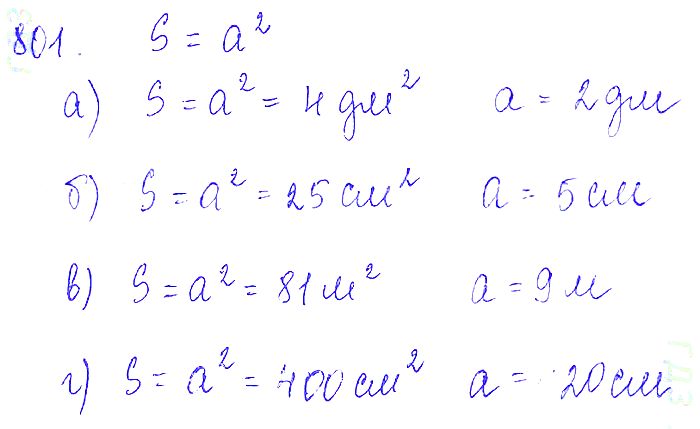 801. S = a²
а) S = a² = 4 дм² a = 2 дм
б) S = a² = 25 см² a = 5 см
в) S = a² = 81 м² a = 9 м
г) S = a² = 400 см² a = 20 см